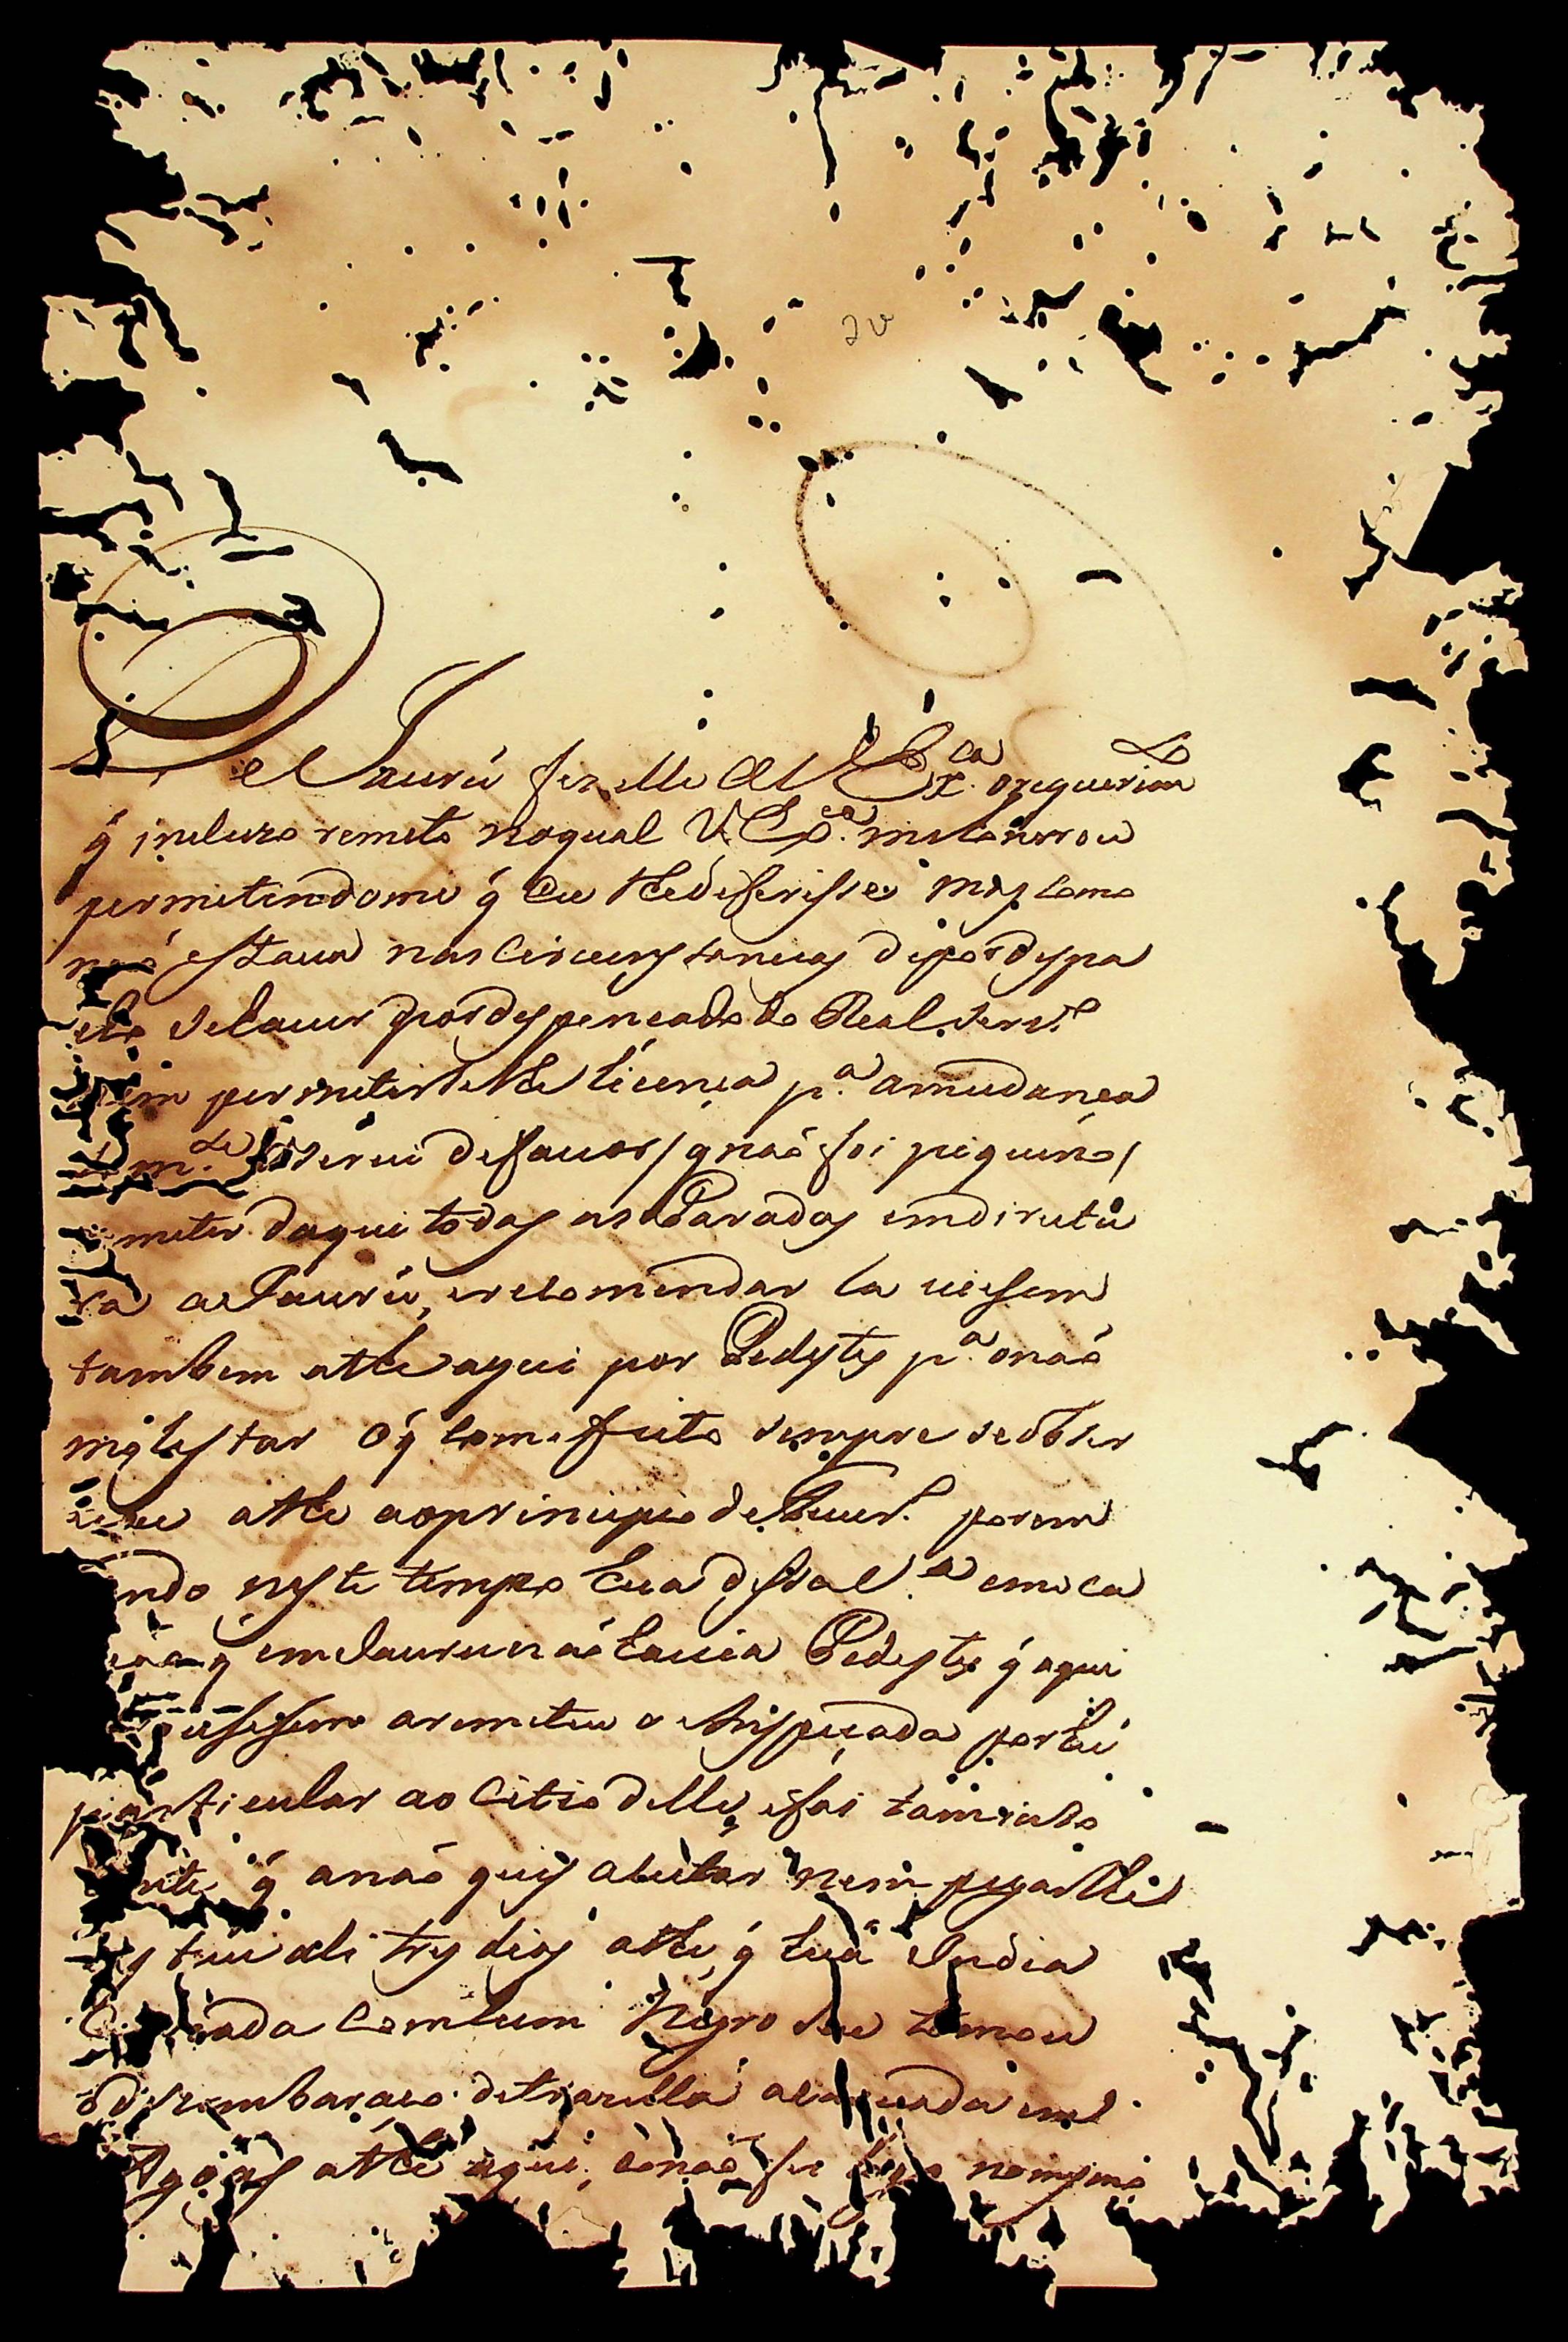 2v
De Jaurú fes elle A V Ex.ca o requerim.to
q̃ incluzo remeto no qual V. Ex.ca me tá honrou
permetindome q̃ eu lhe deferisse mas como
naõ estaua nas circunstancias de pôr despa
cho de o auer por despençado do Real Serv.ço
permetirlhe licença p.a a mudança
m.de lhe serui de fauor / q̃ naõ foi piqueno /
meter daqui todas as Paradas em direitu
ra a Jaurú, e recomendar la uiessem
tambem athe aqui por Pedestes p.a o naõ
molestar o q̃ com efeito sempre se obser
uou athe ao principio de Feuer.o porem
ndo neste tempo hua de Sal.a em ca
q̃ em Jauru naõ hauia Pedestes q̃ aqui
uessem a remeteu o Anspeçada por hú
particular ao Citio delle, e foi tam
nte q̃ a naõ quis aceitar nem pegarlhe
esteue ali tres dias athe q̃ huã India
Cazada com hum Negro seu tomou
o dezembaraço de trazella a cauada em
Agoas athe aqui, e naõ foi nomesmo